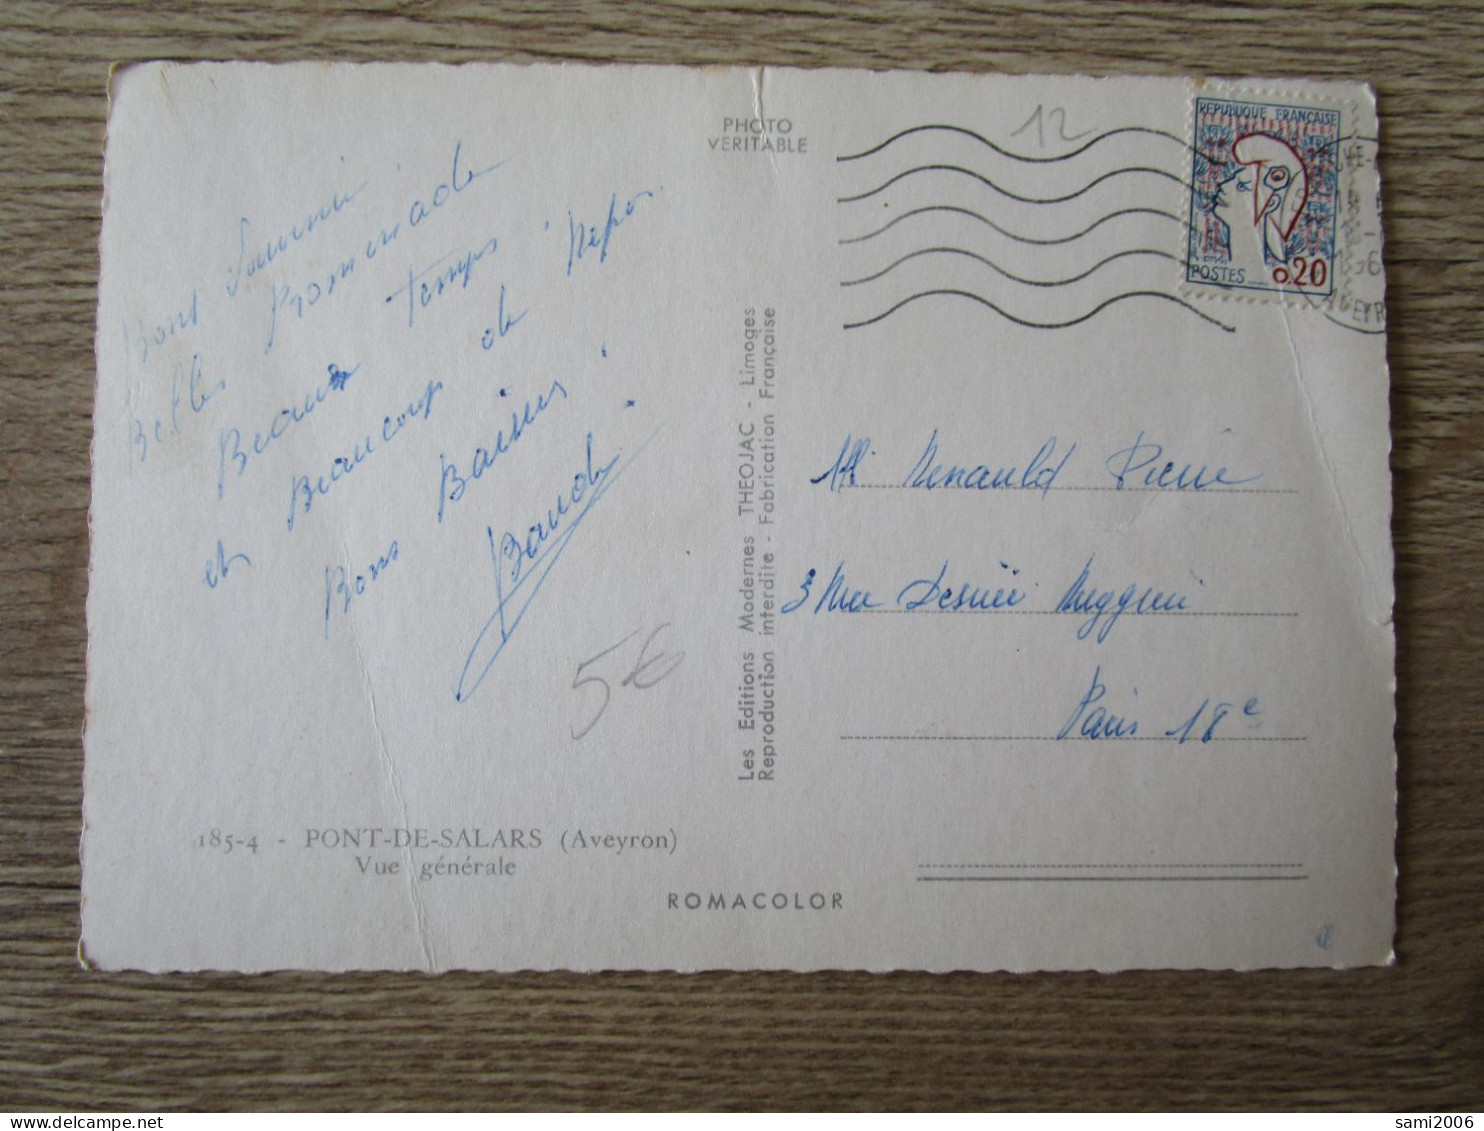 Bons Souvenir
Belles Promenade
Beaux temps
et Beaucoup de Repos.
Bons Baisers.
PHOTO
VERITABLE
12
REPUBLIQUE FRANÇAISE
POSTES
0.20
AVEYR
Les Editions Modernes THEOJAC - Limoges
Reproduction interdite - Fabrication Française
M. Renauld Pierre
3 Rue Desirée Ruggieri
Paris 18e
56
185-4 - PONT-DE-SALARS (Aveyron)
Vue générale
ROMACOLOR
sami2006